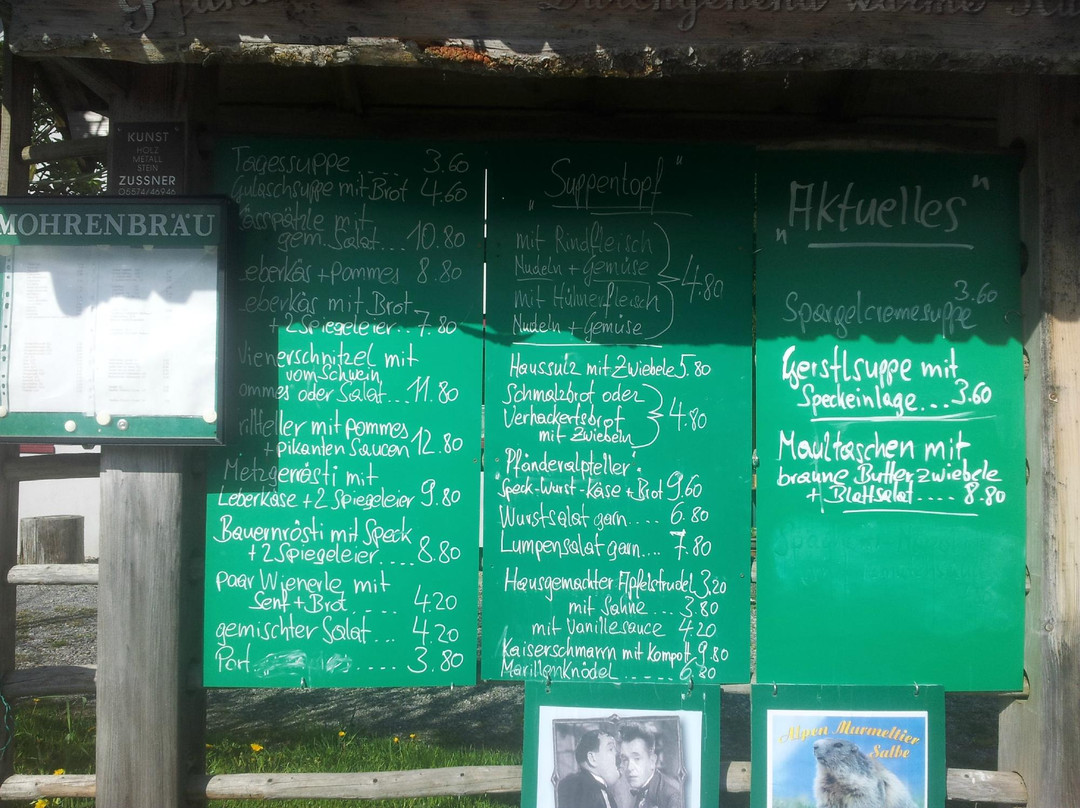 Durchgehend warme
KUNST
HOLZ
METALL
STEIN
ZUSSNER
05574/46946
MOHRENBRÄU
Tagessuppe ..... 3.60
Gulaschsuppe mit Brot 4.60
ässpätzle mit
gem. Salat... 10.80
eberkäs + pommes 8.80
eberkäs mit Brot
+ 2 Spiegeleier.. 7.80
ienerschnitzel mit
vom Schwein
ommes oder Salat... 11.80
rillteller mit pommes
+ pikanten Saucen 12.80
Metzgerrösti mit
Leberkäse + 2 Spiegeleier 9.80
Bauernrösti mit Speck
+ 2 Spiegeleier.... 8.80
paar Wienerle mit
Senf + Brot..... 4.20
gemischter Salat... 4.20
Port. ..... 3.80
„Suppentopf"
mit Rindfleisch
Nudeln + Gemüse
4.80
mit Hühnerfleisch
Nudeln + Gemüse
Haussulz mit Zwiebele 5.80
Schmalzbrot oder
Verhackertsbrot 4.80
mit Zwiebeln
Pfänderalpteller:
Speck-Wurst-Käse + Brot 9.60
Wurstsalat garn.... 6.80
Lumpensalat garn... 7.80
Hausgemachter Apfelstrudel 3,20
mit Sahne... 3.80
mit Vanillesauce 4.20
Kaiserschmarrn mit Kompott 9.80
Marillenknödel ...... 6,80
„Aktuelles"
3.60
Spargelcremesuppe
Gerstlsuppe mit
Speckeinlage... 3.60
Maultaschen mit
braune Butterzwiebele
+ Blattsalat..... 8.80
Alpen Murmeltier
Salbe